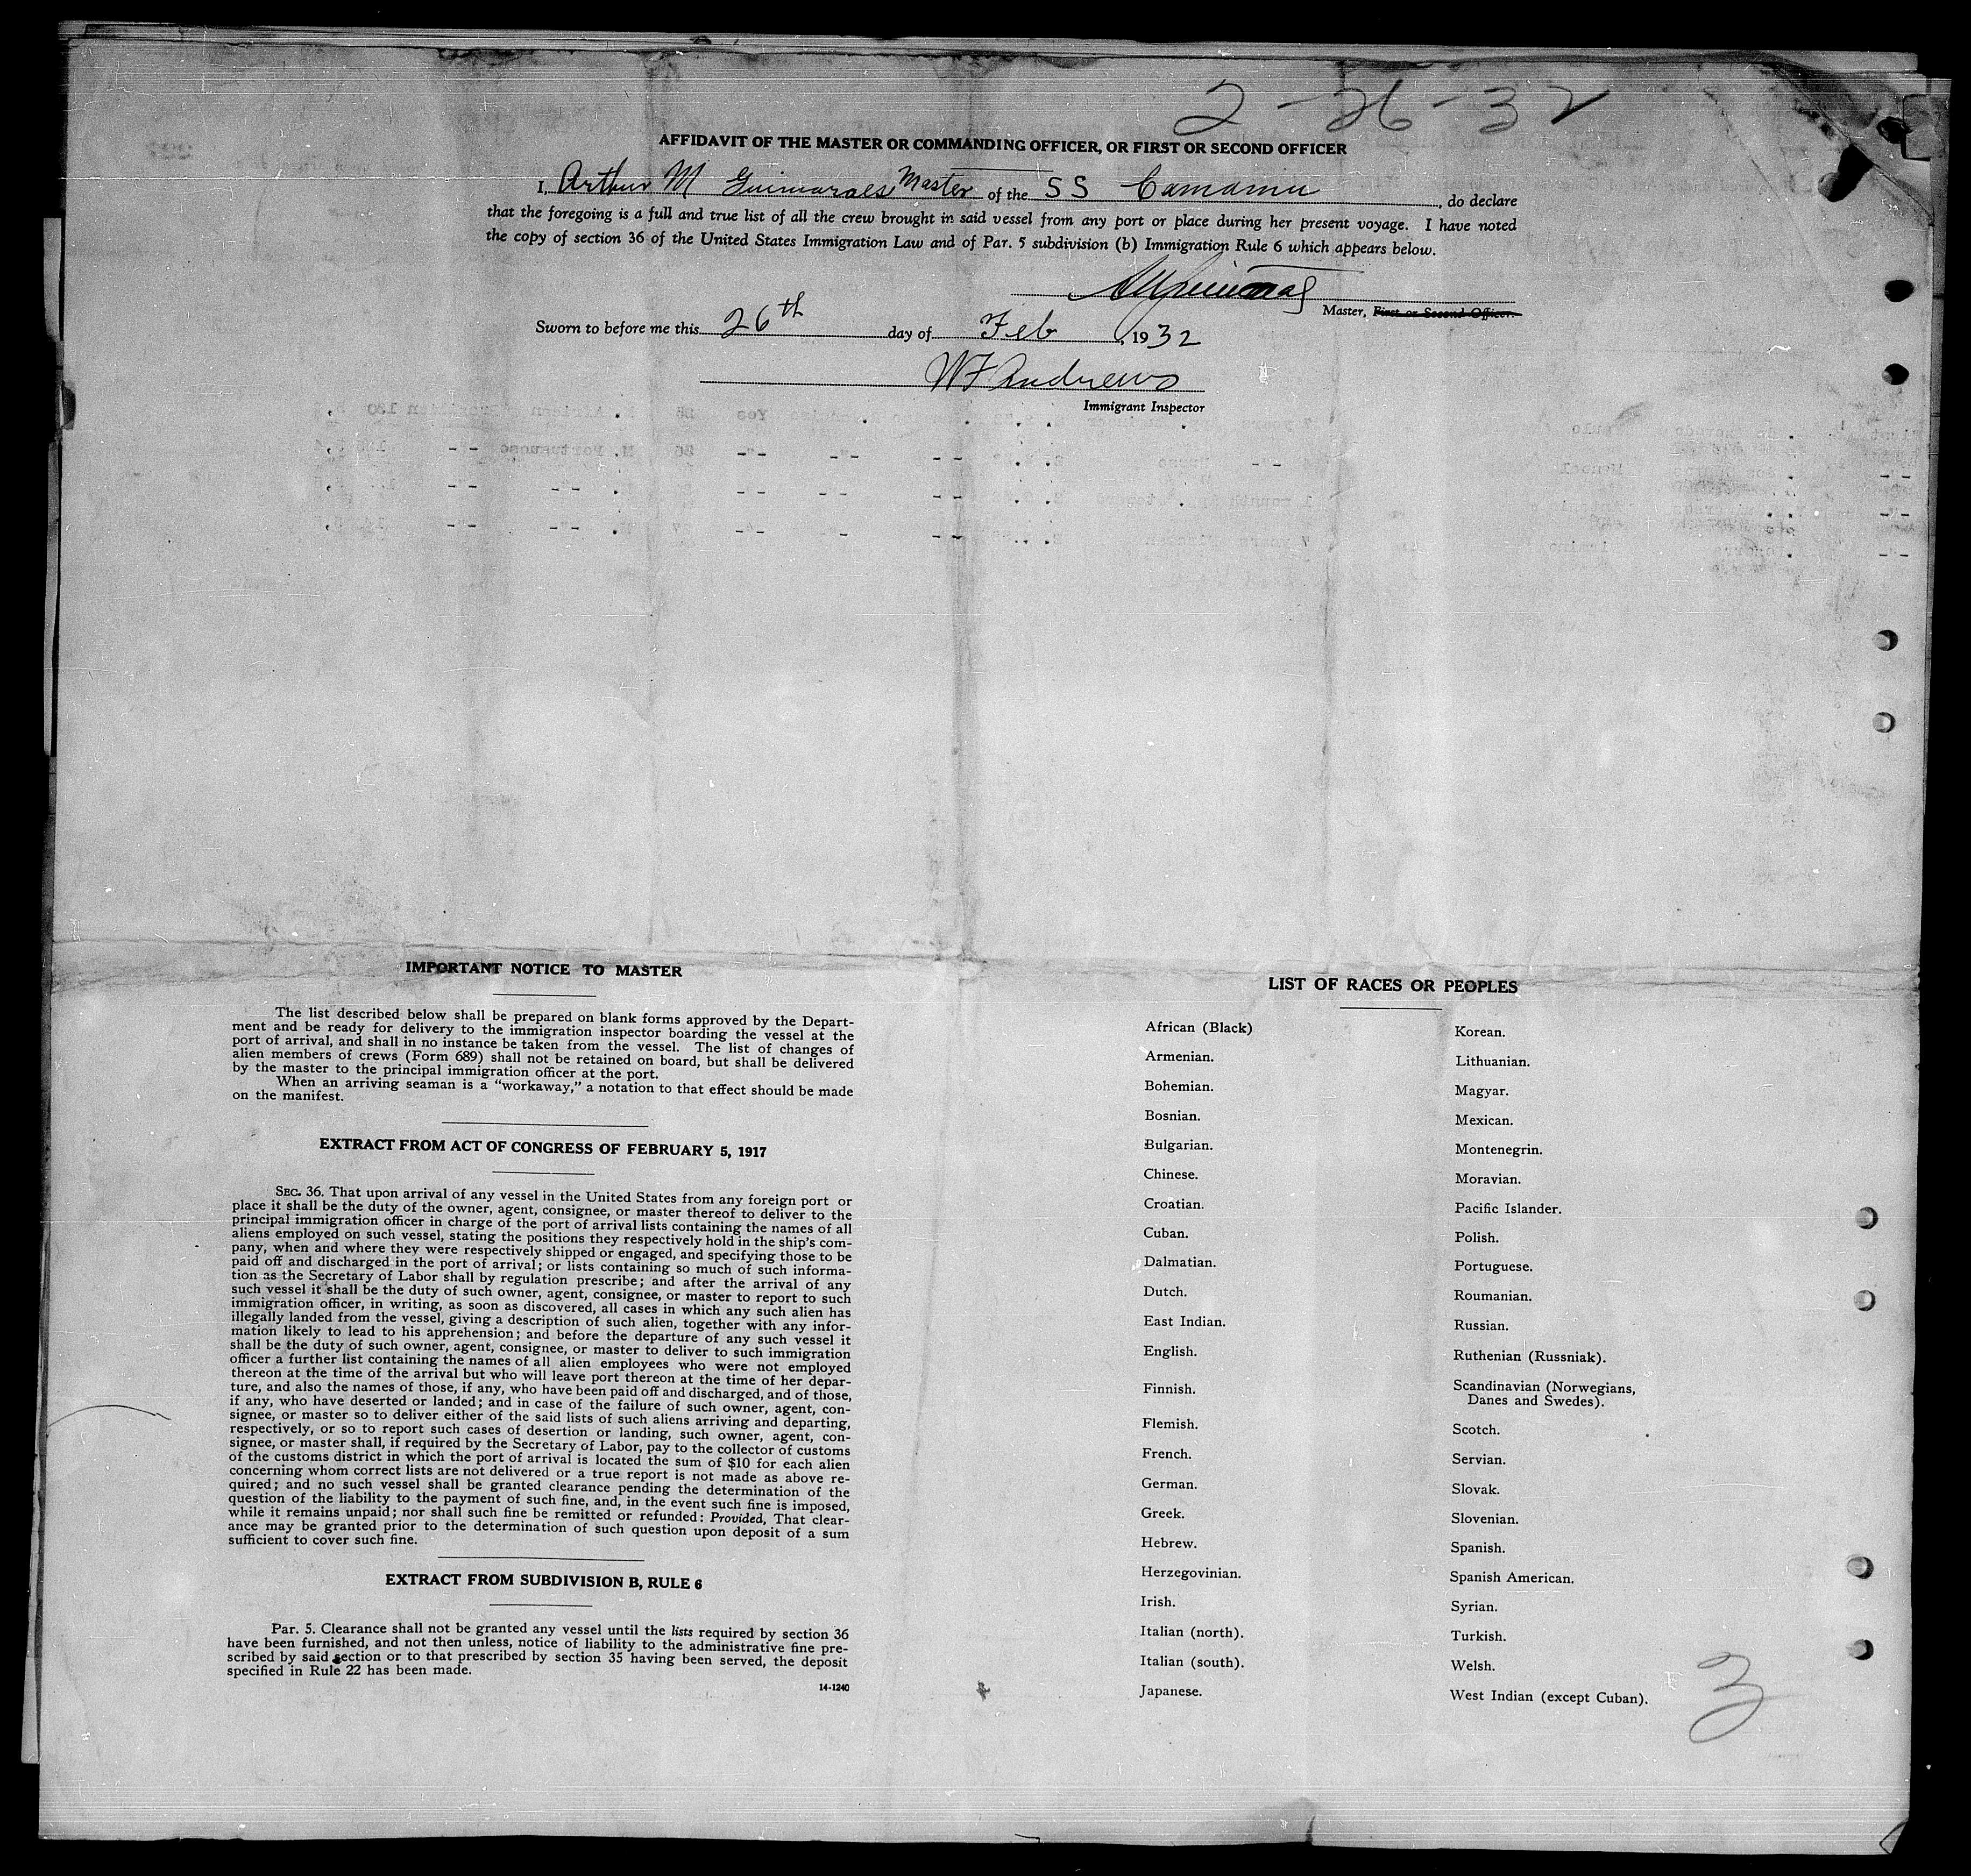 2-26-32
AFFIDAVIT OF THE MASTER OR COMMANDING OFFICER, OR FIRST OR SECOND OFFICER
I, Arthur M Guimaraes Master of the SS Camamu, do declare
that the foregoing is a full and true list of all the crew brought in said vessel from any port or place during her present voyage. I have noted
the copy of section 36 of the United States Immigration Law and of Par. 5 subdivision (b) Immigration Rule 6 which appears below.
Master, First or Second Officer.
Sworn to before me this 26th day of Feb, 1932
WF Andrews
Immigrant Inspector
IMPORTANT NOTICE TO MASTER
The list described below shall be prepared on blank forms approved by the Depart-
ment and be ready for delivery to the immigration inspector boarding the vessel at the
port of arrival, and shall in no instance be taken from the vessel. The list of changes of
alien members of crews (Form 689) shall not be retained on board, but shall be delivered
by the master to the principal immigration officer at the port.
When an arriving seaman is a "workaway," a notation to that effect should be made
on the manifest.
EXTRACT FROM ACT OF CONGRESS OF FEBRUARY 5, 1917
SEC. 36. That upon arrival of any vessel in the United States from any foreign port or
place it shall be the duty of the owner, agent, consignee, or master thereof to deliver to the
principal immigration officer in charge of the port of arrival lists containing the names of all
aliens employed on such vessel, stating the positions they respectively hold in the ship's com-
pany, when and where they were respectively shipped or engaged, and specifying those to be
paid off and discharged in the port of arrival; or lists containing so much of such informa-
tion as the Secretary of Labor shall by regulation prescribe; and after the arrival of any
such vessel it shall be the duty of such owner, agent, consignee, or master to report to such
immigration officer, in writing, as soon as discovered, all cases in which any such alien has
illegally landed from the vessel, giving a description of such alien, together with any infor-
mation likely to lead to his apprehension; and before the departure of any such vessel it
shall be the duty of such owner, agent, consignee, or master to deliver to such immigration
officer a further list containing the names of all alien employees who were not employed
thereon at the time of the arrival but who will leave port thereon at the time of her depar-
ture, and also the names of those, if any, who have been paid off and discharged, and of those,
if any, who have deserted or landed; and in case of the failure of such owner, agent, con-
signee, or master so to deliver either of the said lists of such aliens arriving and departing,
respectively, or so to report such cases of desertion or landing, such owner, agent, con-
signee, or master shall, if required by the Secretary of Labor, pay to the collector of customs
of the customs district in which the port of arrival is located the sum of $10 for each alien
concerning whom correct lists are not delivered or a true report is not made as above re-
quired; and no such vessel shall be granted clearance pending the determination of the
question of the liability to the payment of such fine, and, in the event such fine is imposed,
while it remains unpaid; nor shall such fine be remitted or refunded: Provided, That clear-
ance may be granted prior to the determination of such question upon deposit of a sum
sufficient to cover such fine.
EXTRACT FROM SUBDIVISION B, RULE 6
Par. 5. Clearance shall not be granted any vessel until the lists required by section 36
have been furnished, and not then unless, notice of liability to the administrative fine pre-
scribed by said section or to that prescribed by section 35 having been served, the deposit
specified in Rule 22 has been made.
14-1240
LIST OF RACES OR PEOPLES
African (Black)
Armenian.
Bohemian.
Bosnian.
Bulgarian.
Chinese.
Croatian.
Cuban.
Dalmatian.
Dutch.
East Indian.
English.
Finnish.
Flemish.
French.
German.
Greek.
Hebrew.
Herzegovinian.
Irish.
Italian (north).
Italian (south).
Japanese.
Korean.
Lithuanian.
Magyar.
Mexican.
Montenegrin.
Moravian.
Pacific Islander.
Polish.
Portuguese.
Roumanian.
Russian.
Ruthenian (Russniak).
Scandinavian (Norwegians,
Danes and Swedes).
Scotch.
Servian.
Slovak.
Slovenian.
Spanish.
Spanish American.
Syrian.
Turkish.
Welsh.
West Indian (except Cuban).
3